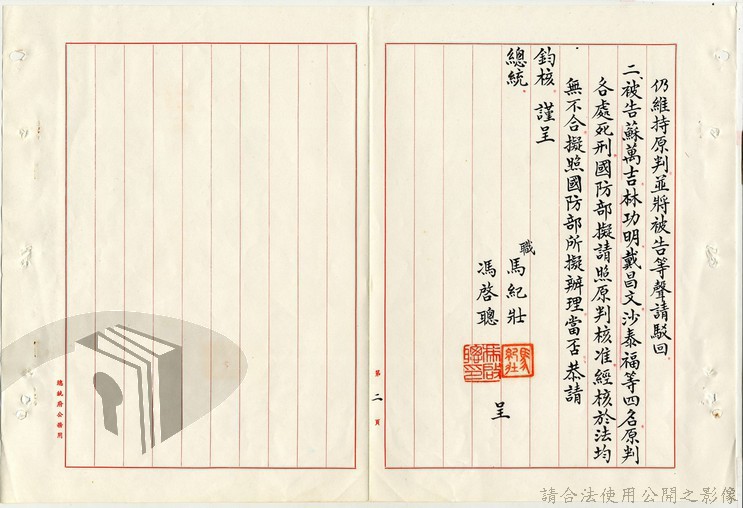 仍維持原判並將被告等聲請駁回
二、被告蘇萬吉林功明戴昌文沙泰福等四名原判
各處死刑國防部擬請照原判核准經核於法均
無不合擬照國防部所擬辦理當否恭請
鈞核 謹呈
總統
職 馬紀壯
馮啓聰 呈
馬紀壯
馮啟聰印
第二頁
總統府公務用
請合法使用公開之影像